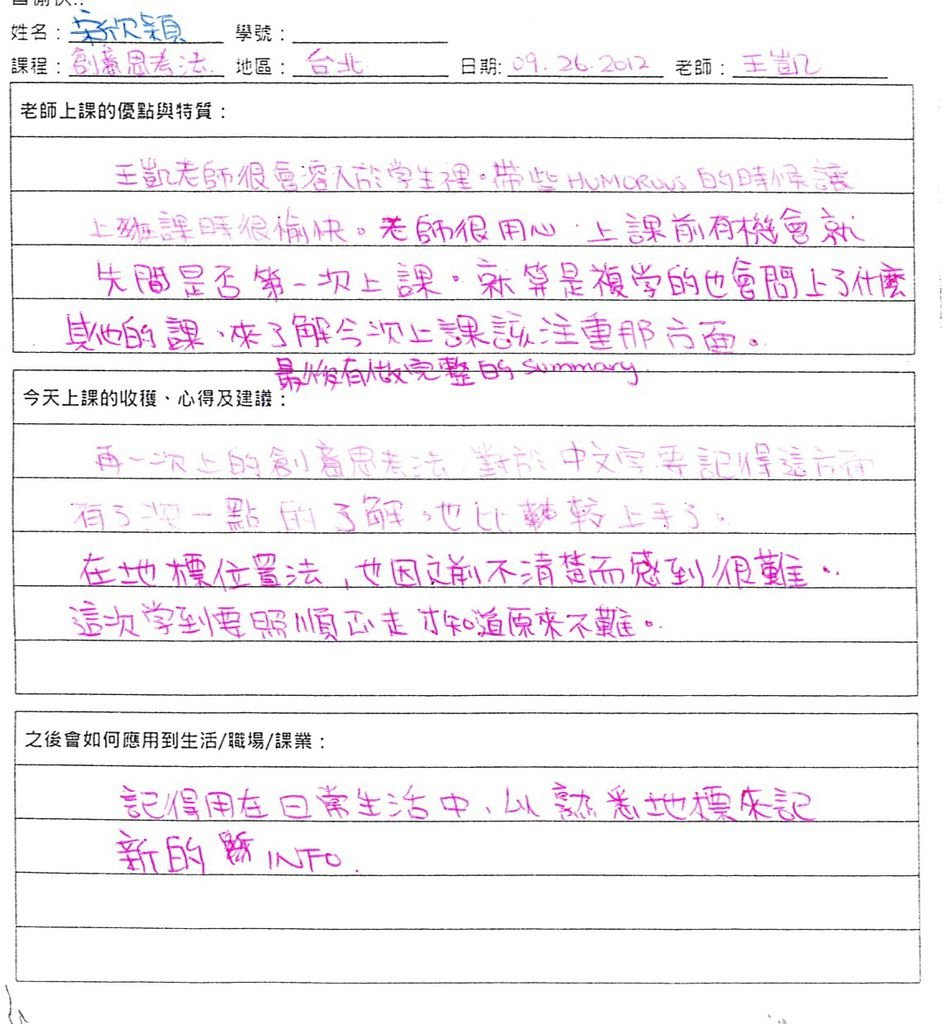 姓名： 宋欣穎 學號：
課程： 創意思考法 地區： 台北 日期: 09.26.2012 老師： 王凱
老師上課的優點與特質：
王凱老師很會溶入於學生裡。帶些 HUMOROUS 的時候讓
上課時很愉快。老師很用心，上課前有機會就
先問是否第一次上課。就算是複学的也會問上了什麼
其他的課，來了解今次上課該注重那方面。
最後有做完整的 Summary
今天上課的收穫、心得及建議：
再一次上的創意思考法，對於中文字要記得這方面
有了深一點的了解，也比較上手了。
在地標位置法，也因之前不清楚而感到很難。
這次学到要照順正走才知道原來不難。
之後會如何應用到生活/職場/課業：
記得用在日常生活中，以熟悉地標來記
新的 INFO.